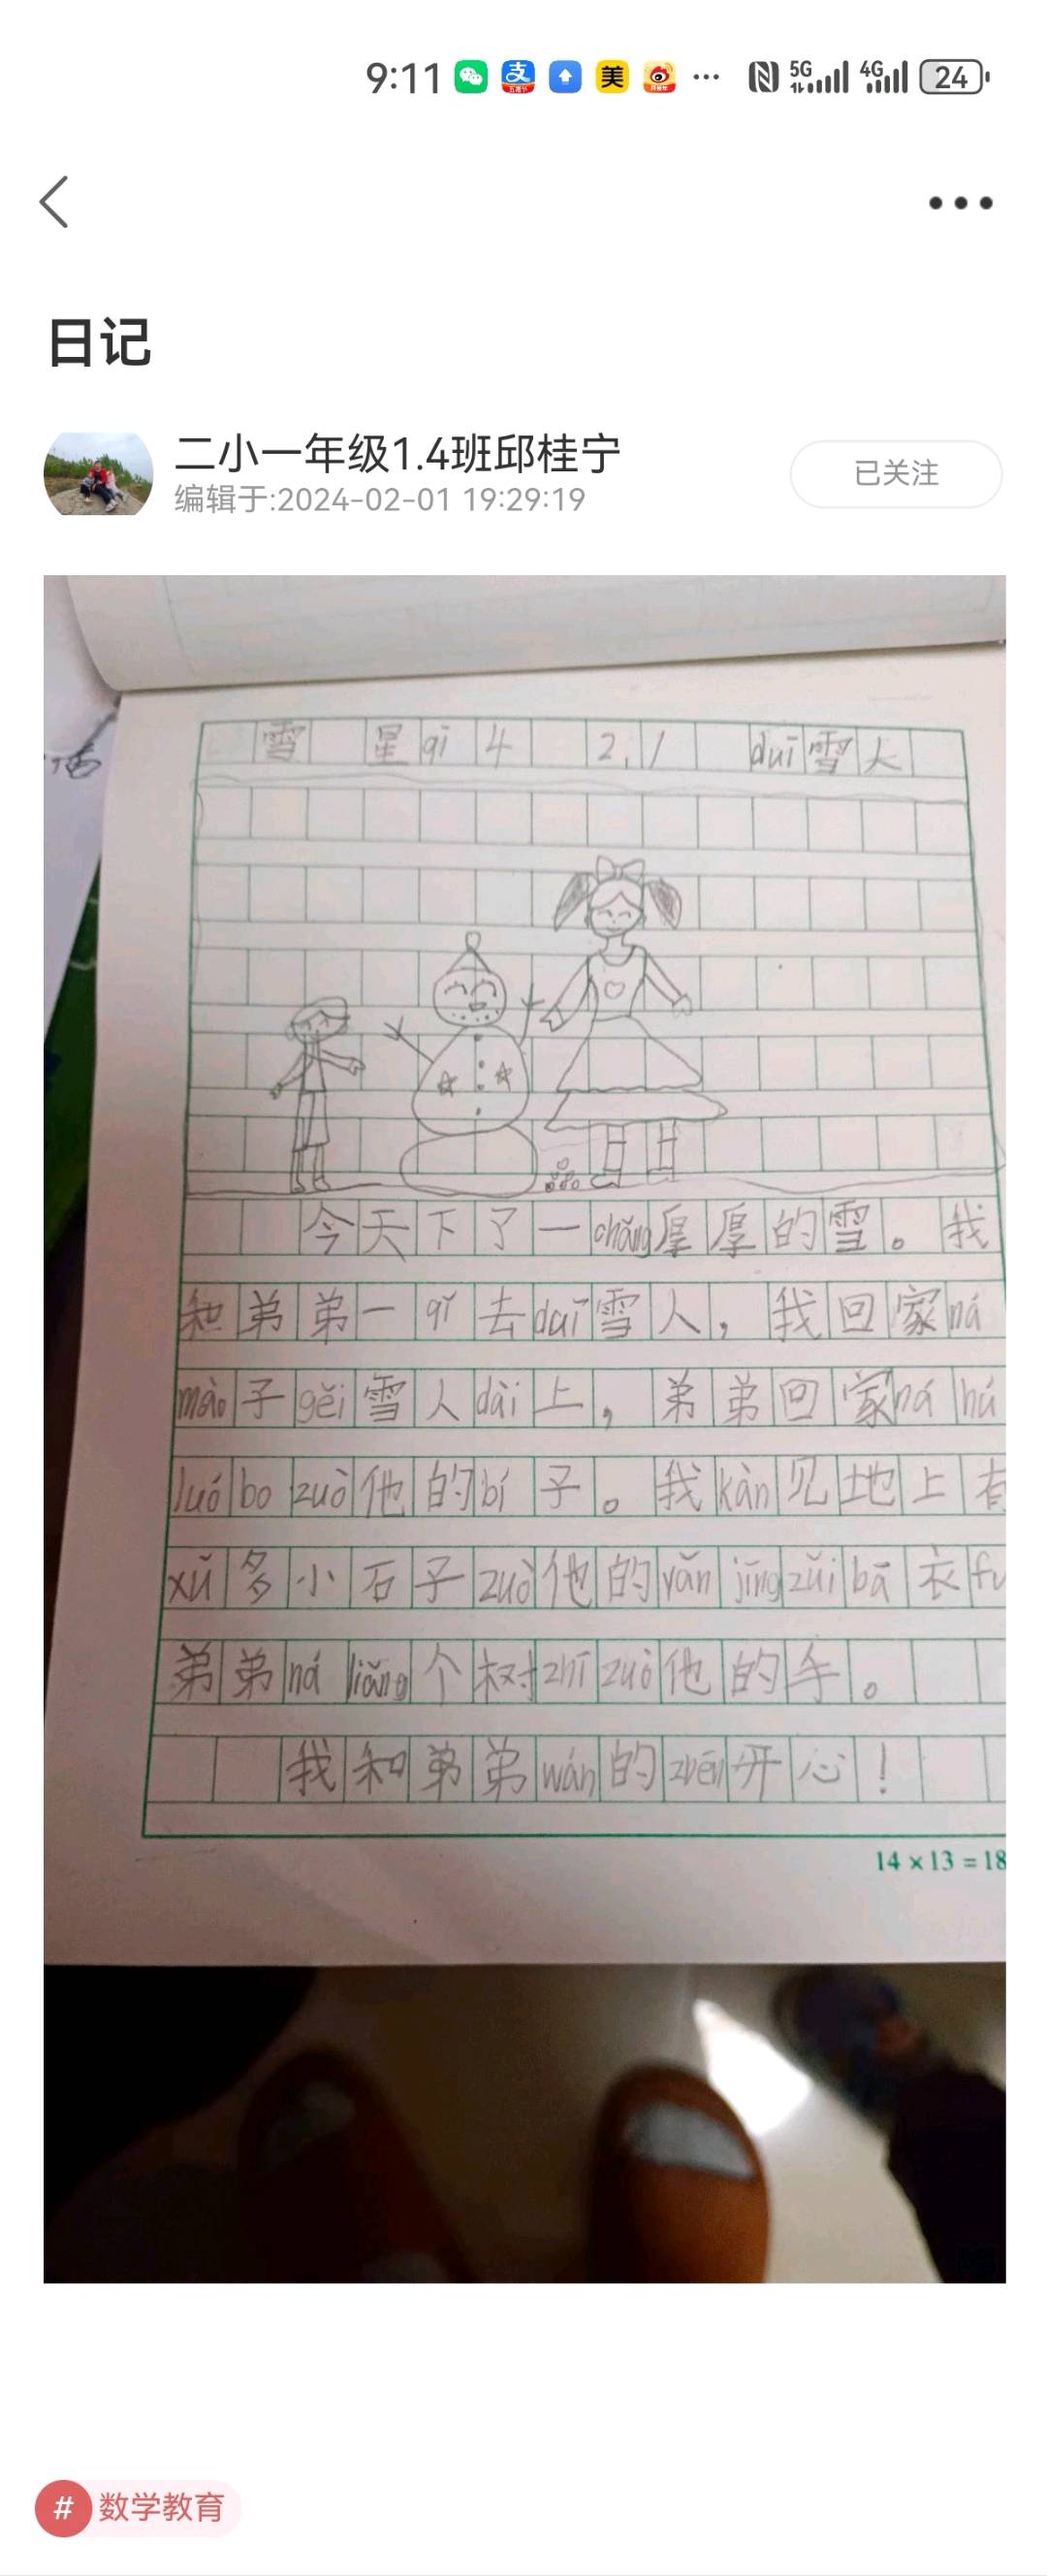 9:11 支 美 ... 5G 4G 24
日记
二小一年级1.4班邱桂宁
编辑于:2024-02-01 19:29:19
已关注
雪 星qī 4 2.1 duī雪人
今天下了一chǎng厚厚的雪。我
和弟弟一qǐ去duī雪人，我回家ná
mào子gěi雪人dài上，弟弟回家ná hú
luó bo zuò他的bí子。我kàn见地上有
xǔ多小石子zuò他的yǎn jīng zuǐ bā衣fu
弟弟ná liǎng个树zhī zuò他的手。
我和弟弟wán的zhēn开心！
14×13=18
# 数学教育